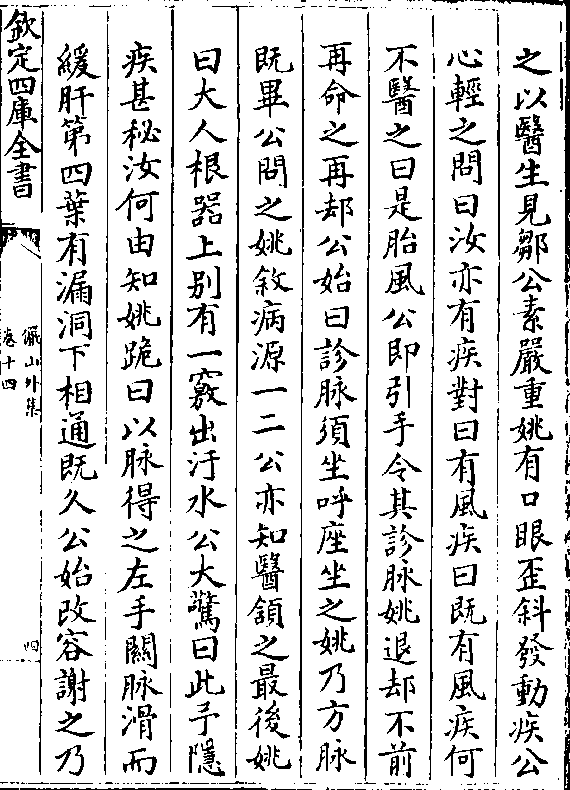 之以醫生見鄒公素嚴重姚有口眼歪斜發動疾公
心輕之問曰汝亦有疾對曰有風疾曰既有風疾何
不醫之曰是胎風公即引手令其診脉姚退却不前
再命之再却公始曰診脉須坐呼座坐之姚乃方脉
既畢公問之姚敘病源一二公亦知醫頷之最後姚
曰大人根器上别有一竅出汙水公大驚曰此予隱
疾甚秘汝何由知姚跪曰以脉得之左手關脉滑而
緩肝第四葉有漏洞下相通既久公始改容謝之乃
欽定四庫全書
儼山外集
卷十四
四